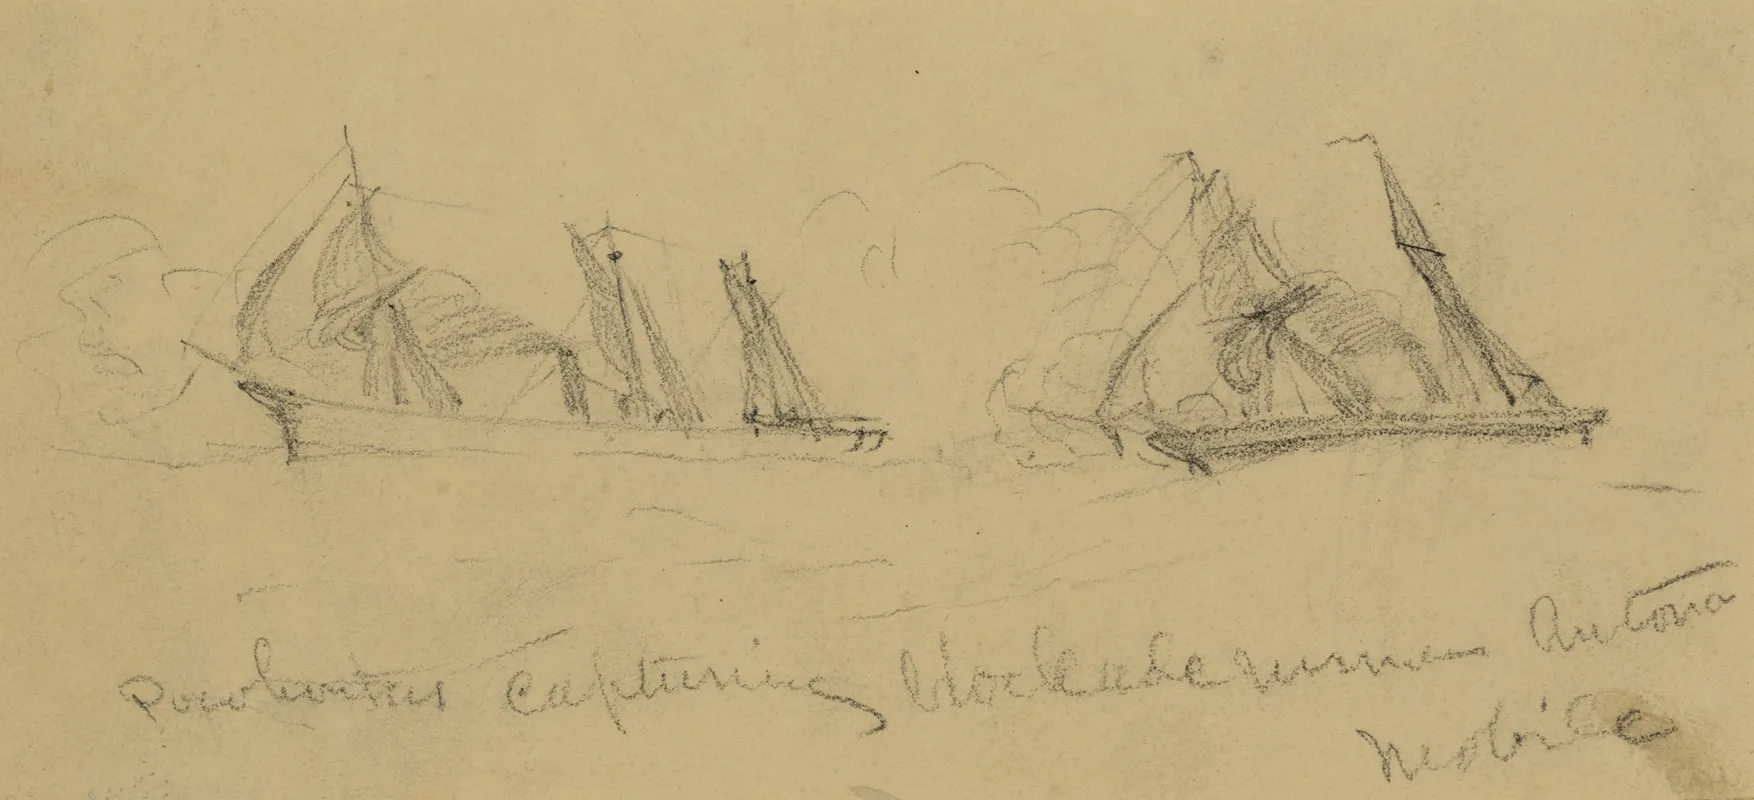 Powhattan capturing blockade runner Antona
Mobile